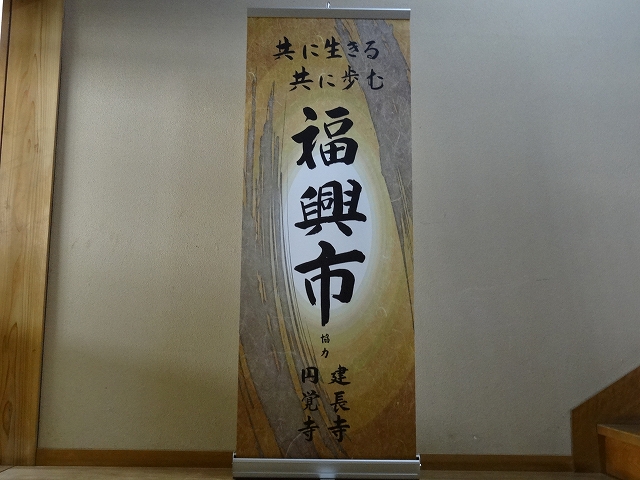 共に生きる
共に歩む
福興市
協力
建長寺
円覚寺